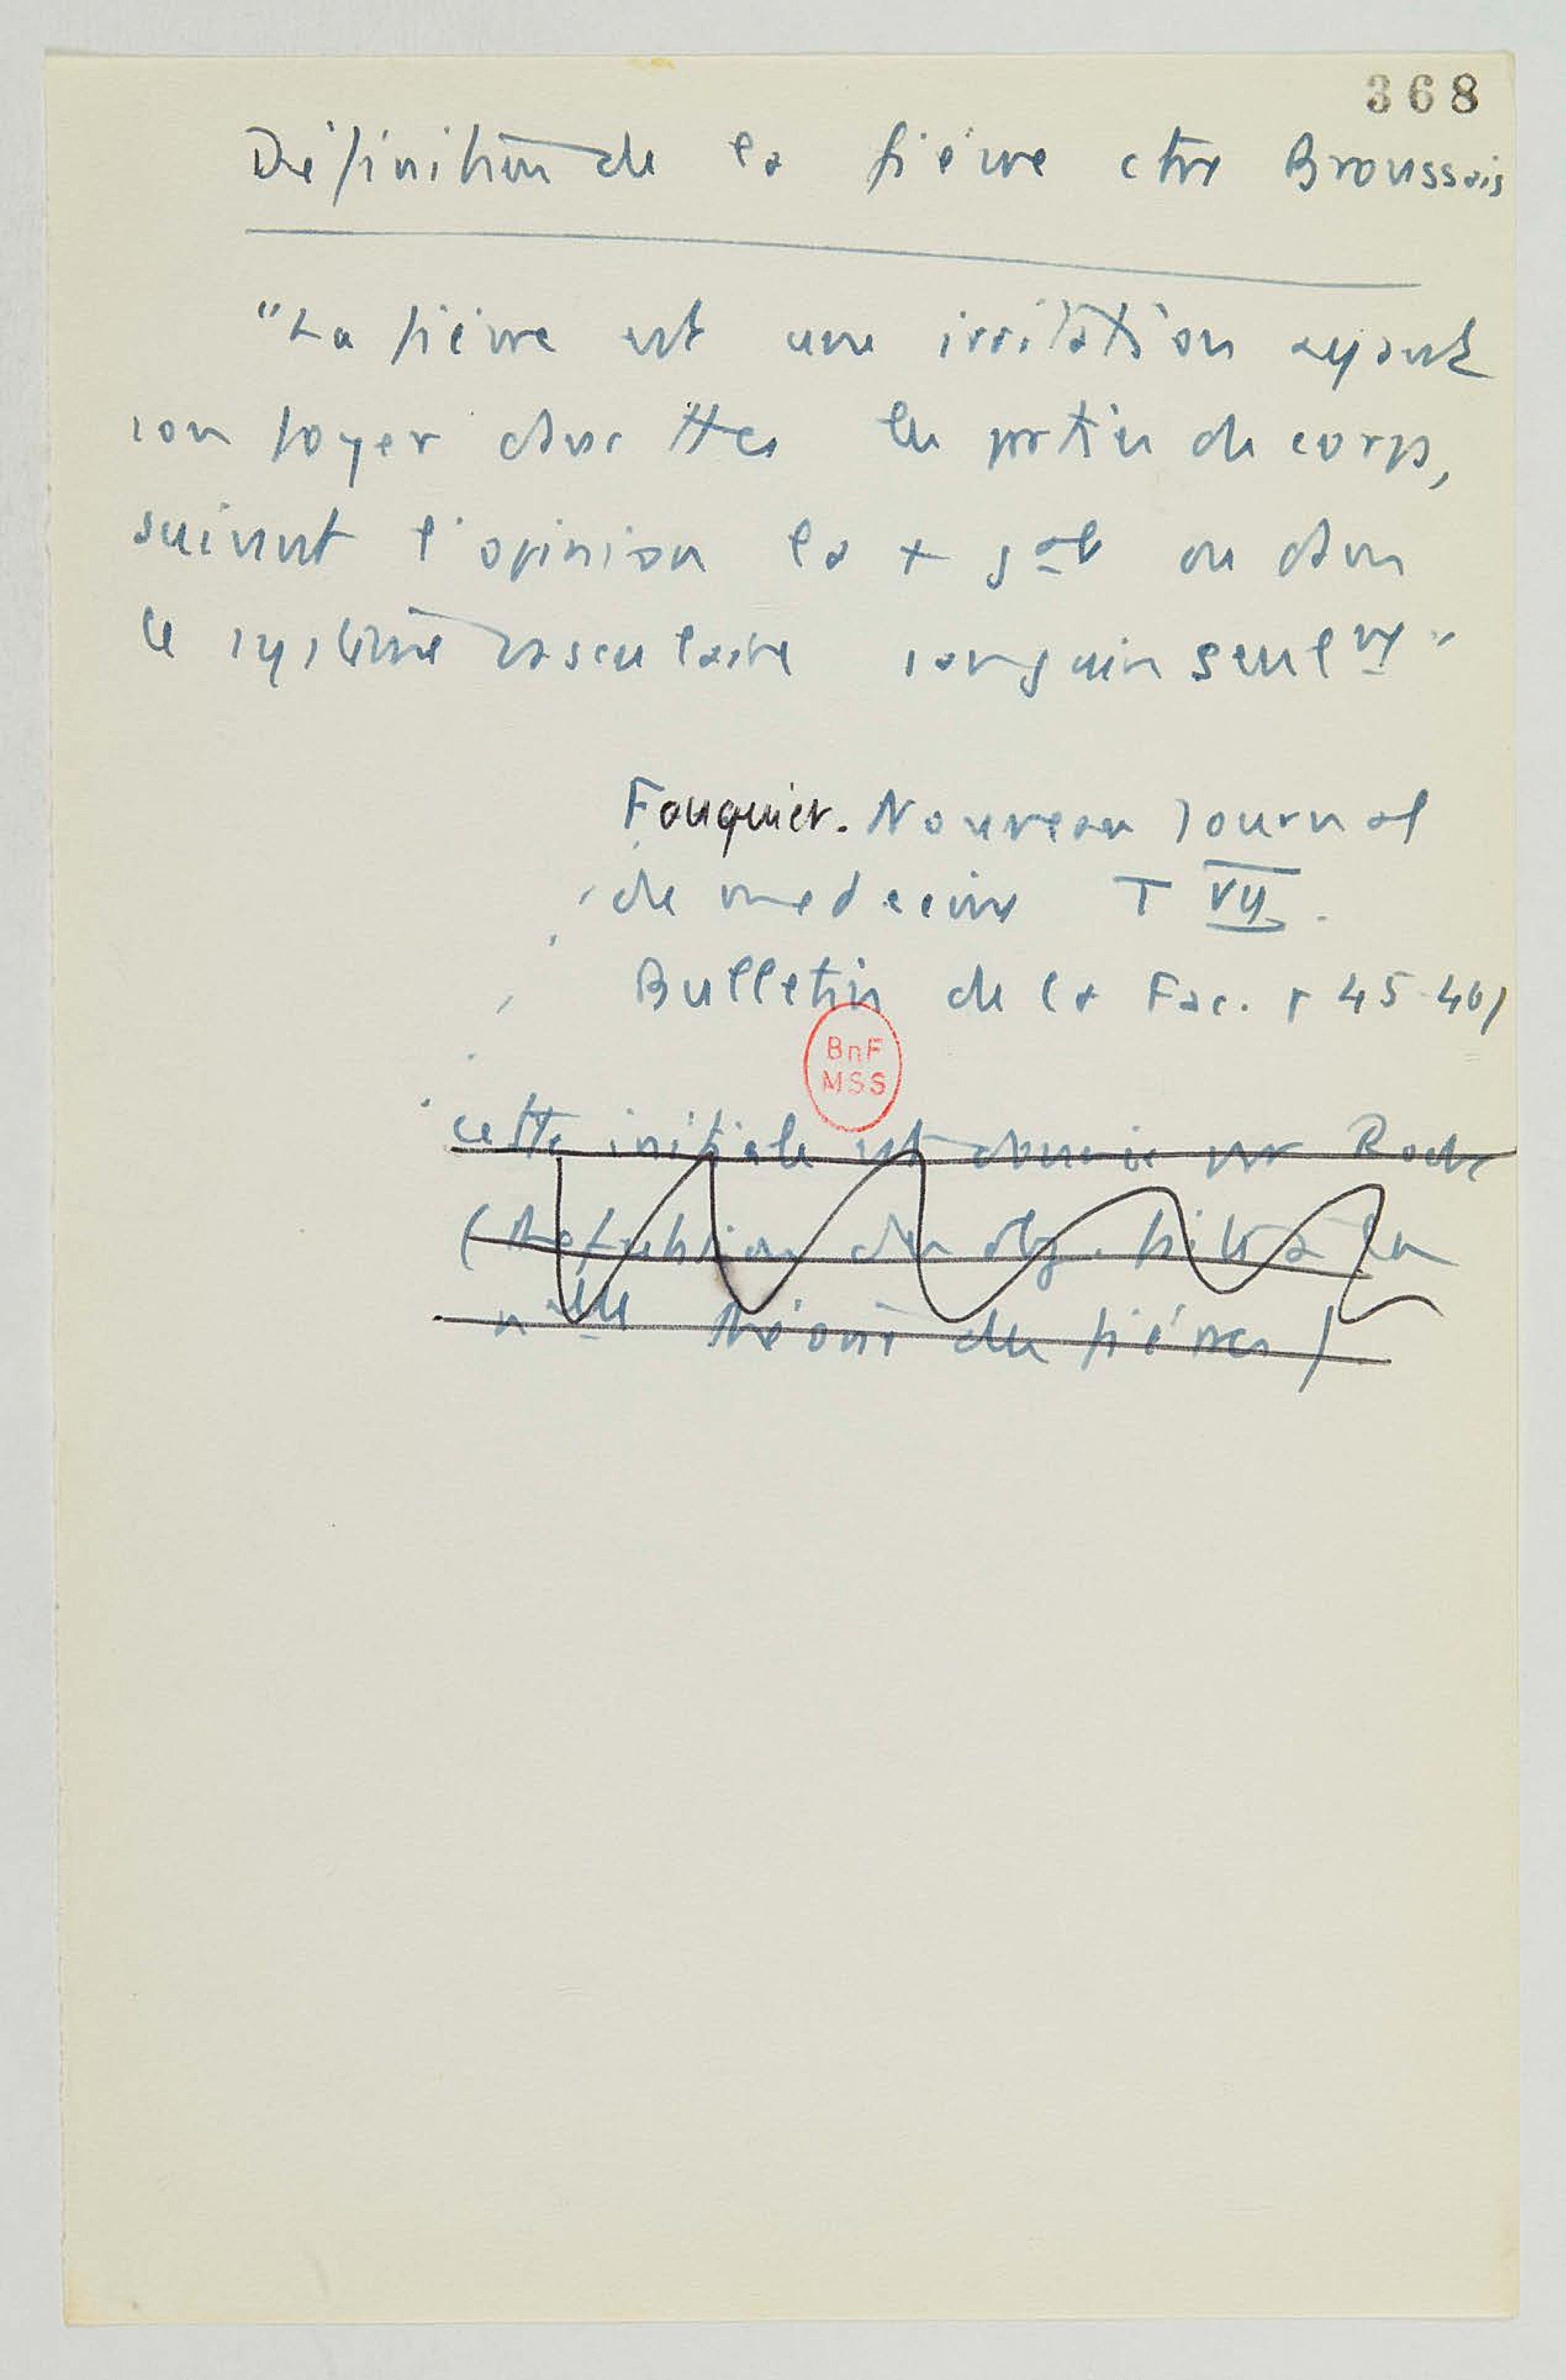 368
Définition de la fièvre chz Broussais
"La fièvre est une irritation ayant
son foyer dans ttes les parties du corps,
suivant l'opinion la + gale ou dans
le système vasculaire sanguin seulmt"
Fouquier. Nouveau Journal
de medecine T VII.
Bulletin de la Fac. p 45-46)
BnF
MSS
cette initiale est donnée par Roche
(Refutation des obj. faites à la
nlle théorie des fièvres)